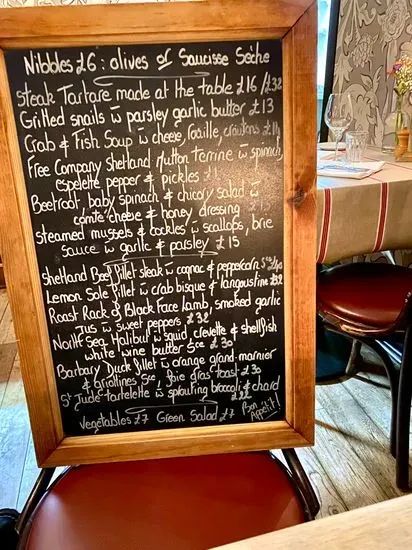 Nibbles £6 : olives or Saucisse Sèche
Steak Tartare made at the table £16 / £32
Grilled snails w parsley garlic butter £13
Crab & Fish Soup w cheese, rouille, croutons £14
Free Company Shetland Mutton Terrine w spinach,
espelette pepper & pickles
Beetroot, baby spinach & chicory salad w
comte cheese & honey dressing
Steamed mussels & cockles w scallops, brie
sauce w garlic & parsley £15
Shetland Beef fillet steak w cognac & peppercorn sce
Lemon Sole fillet w crab bisque & langoustine £32
Roast Rack of Black Face Lamb, smoked garlic
Jus w sweet peppers £32
North Sea Halibut w squid, crevette & shellfish
white wine butter sce £30
Barbary Duck fillet w orange grand-marnier
& griottines sce, foie gras toast £30
St Jude tartelette w sprouting broccoli & chard
£22
Vegetables £7 Green Salad £7 Bon
Appétit!